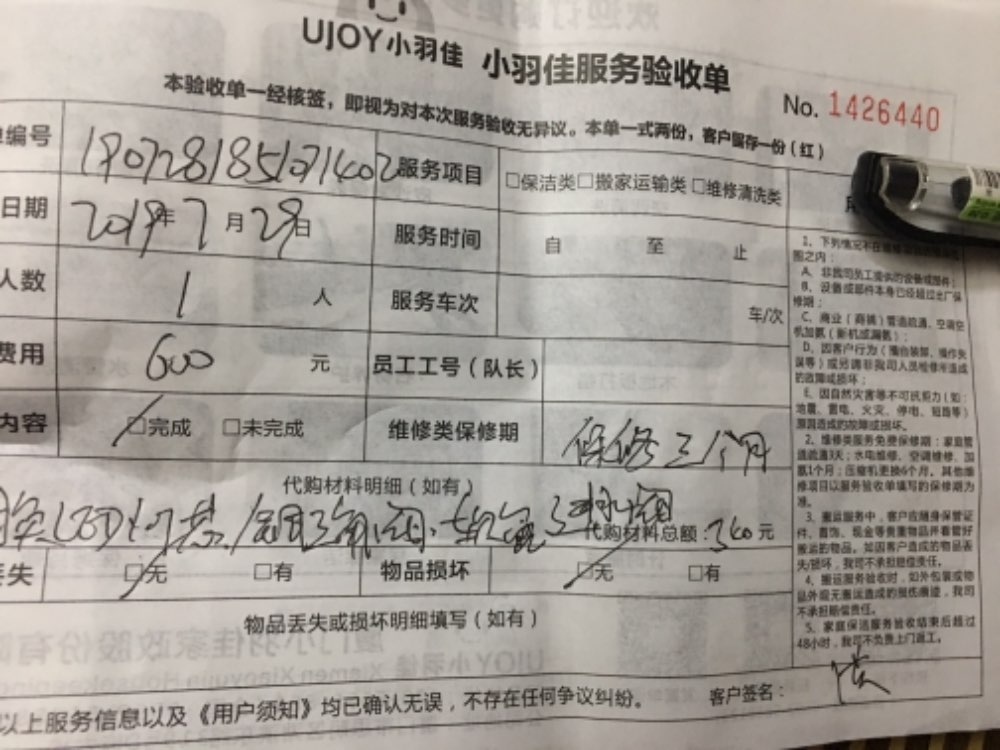 UJOY小羽佳 小羽佳服务验收单
No. 1426440
本验收单一经核签，即视为对本次服务验收无异议。本单一式两份，客户留存一份（红）
编号 1907281851071402 服务项目 □保洁类□搬家运输类□维修清洗类
日期 2019年7月29日 服务时间 自 至 止
人数 1 人 服务车次 车/次
费用 600 元 员工工号（队长）
内容 □完成 □未完成 维修类保修期 保修三个月
代购材料明细（如有）
代购材料总额：340元
丢失 □无 □有 物品损坏 □无 □有
物品丢失或损坏明细填写（如有）
以上服务信息以及《用户须知》均已确认无误，不存在任何争议纠纷。 客户签名：
A、非我司员工提供的设备或部件；
B、设备或部件本身已经超过出厂保
修期；
C、商业（商铺）管道疏通、空调空
机加氨（新机或漏氨）；
的故障或损坏；
E、因自然灾害等不可抗拒力（如：
地震、雷电、火灾、停电、短路等）
原因造成的故障或损坏。
2、维修类服务免费保修期：家庭管
道疏通3天；水电维修、空调维修、加
氨1个月；压缩机更换6个月。其他维
修项目以服务验收单填写的保修期为
准。
3、搬运服务中，客户应随身保管证
件、首饰、现金等贵重物品并看管好
搬运的物品。如因客户造成的物品丢
失/损坏，我司不承担赔偿责任。
4、搬运服务验收时，如外包装或物
品外观无搬运造成的损伤痕迹，我司
不承担赔偿责任。
5、家庭保洁服务验收结束后超过
48小时，我司不负责上门返工。